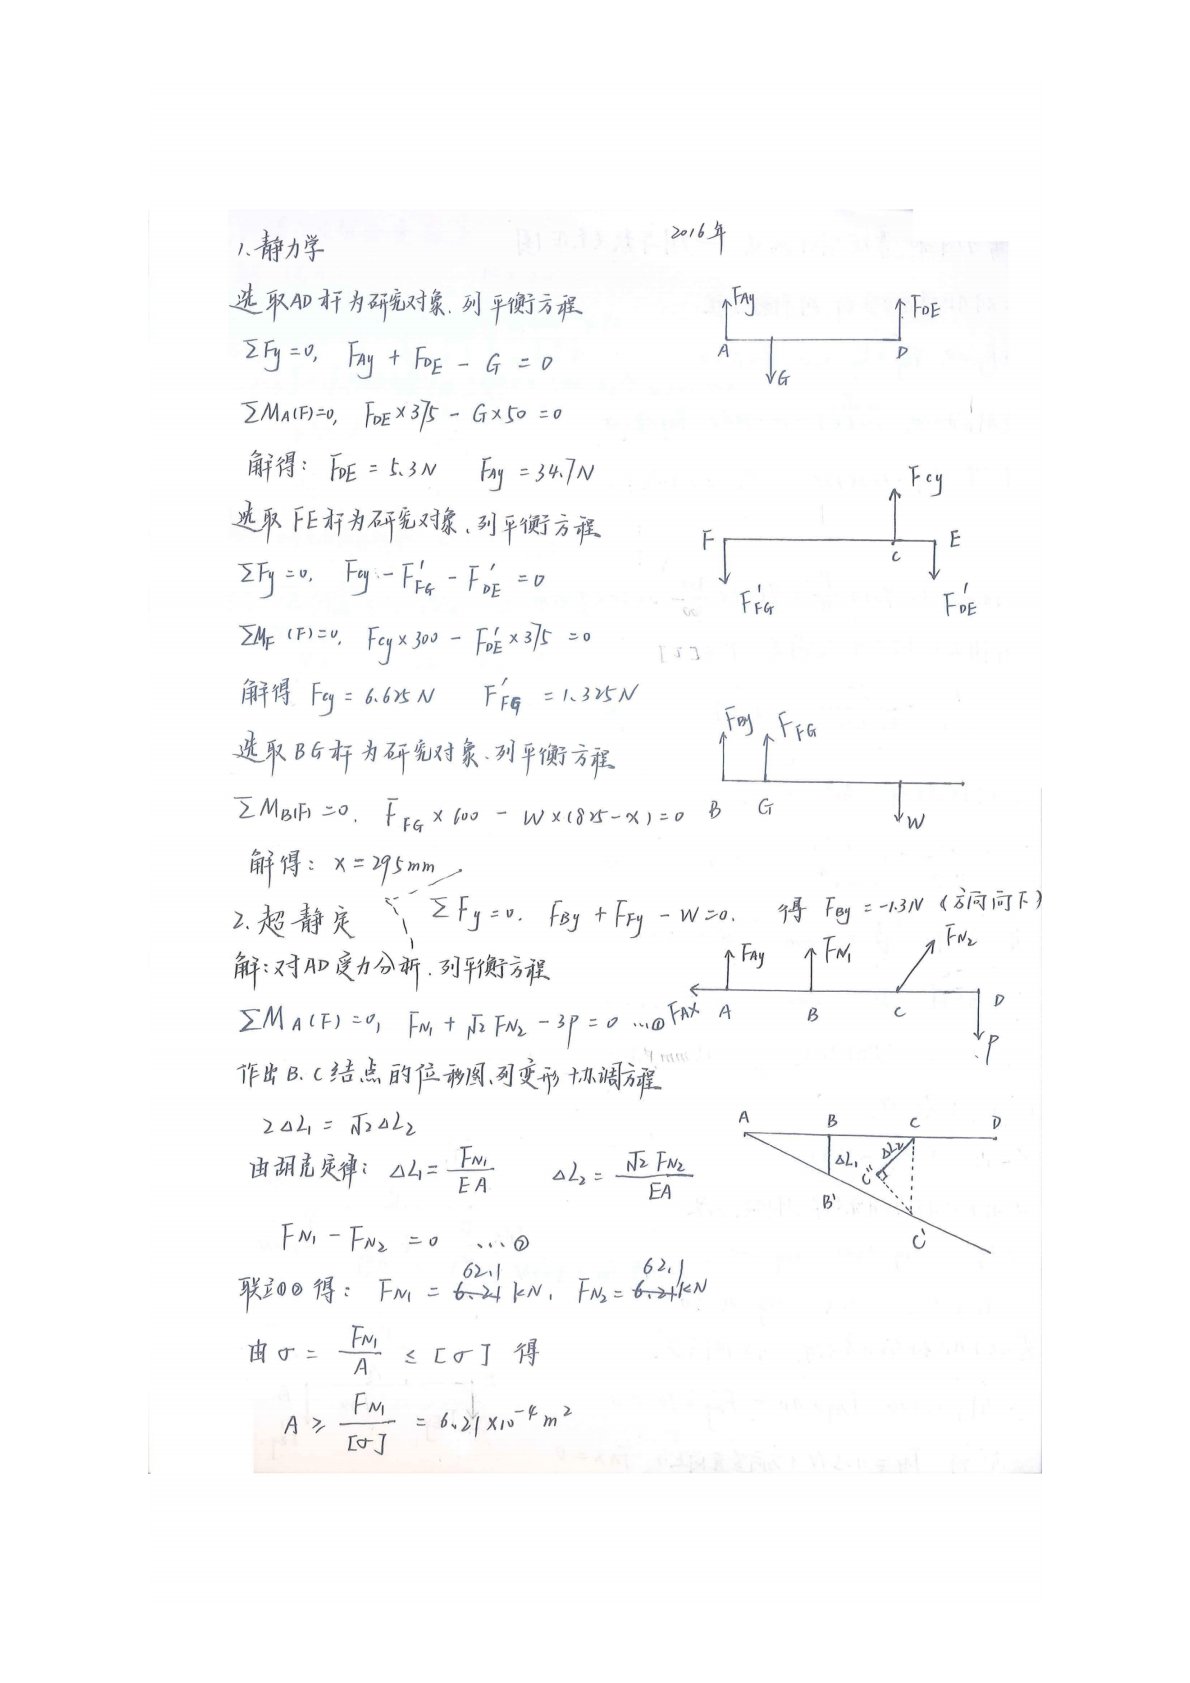 2016年
1、静力学
选取AD杆为研究对象.列平衡方程
ΣFy=0, FAy + FDE - G = 0
ΣMA(F)=0, FDE×375 - G×50 = 0
解得: FDE = 5.3N FAy = 34.7N
FAy FDE
A D
G
选取FE杆为研究对象、列平衡方程
ΣFy=0, Fcy - F'FG - F'DE = 0
ΣMF(F)=0, Fcy×300 - F'DE×375 = 0
解得 Fcy = 6.625N F'FG = 1.325N
Fcy
F C E
F'FG F'DE
选取BG杆为研究对象、列平衡方程
ΣMB(F)=0, FFG×600 - W×(825-x)=0
解得: x=295mm
FBy FFG
B G W
ΣFy=0, FBy + FFy - W=0, 得 FBy = -1.3N (方向向下)
2.超静定
解:对AD受力分析.列平衡方程
ΣMA(F)=0, FN1 + √2 FN2 - 3P = 0 …①
FAy FN1 FN2
FAX A B C D
P
作出B.C结点的位移图、列变形协调方程
2ΔL1 = √2ΔL2
由胡克定律: ΔL1 = FN1/EA ΔL2 = √2 FN2/EA
A B C D
ΔL1 ΔL2 C''
B' C'
FN1 - FN2 = 0 …②
62.1 62.1
联立①②得: FN1 = 6.21 kN, FN2 = 6.21 kN
由σ = FN1/A ≤ [σ] 得
A ≥ FN1/[σ] = 6.21×10⁻⁴ m²